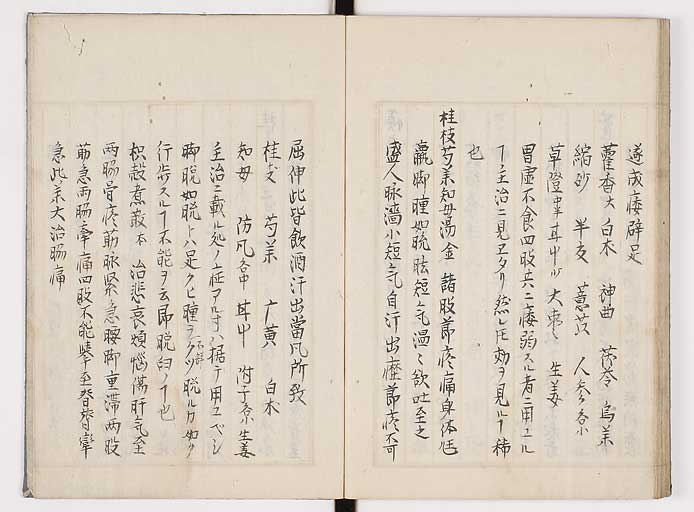 遂成痿躄足
藿香大 白朮 神曲 茯苓 烏薬
縮砂 半夏 薏苡 人参各小
草澄茄 甘中ハ 大棗 生姜
胃虚不食四肢共ニ痿弱スル者ニ用ユル
ヿ主治ニ見エタリ然レ𪜈効ヲ見ルヿ稀
也
桂枝芍薬知母湯金 諸肢節疼痛身体尫
羸脚腫如脱眩短気温々欲吐至之
盛人脉濇小短気自汗出歴節疼不可
屈伸此皆飲酒汗出當風所致
桂支 芍薬 亡黄 白朮
知母 防風各中 甘中 附子各小 生姜
主治ニ載ル処ノ症アル寸ハ据テ用ユベシ
脚脱如脱トハ足クヒ腫ヲクツ脱ルカ如ク
不詳
行歩スルヿ不能ヲ云即脱臼ノヿ也
枳殻煮散本 治悲哀煩悩傷肝気至
両脇骨疼筋脉緊急腰脚重滞両股
筋急両脇牽痛四肢不能挙至脊膂攣
急此薬大治脇痛